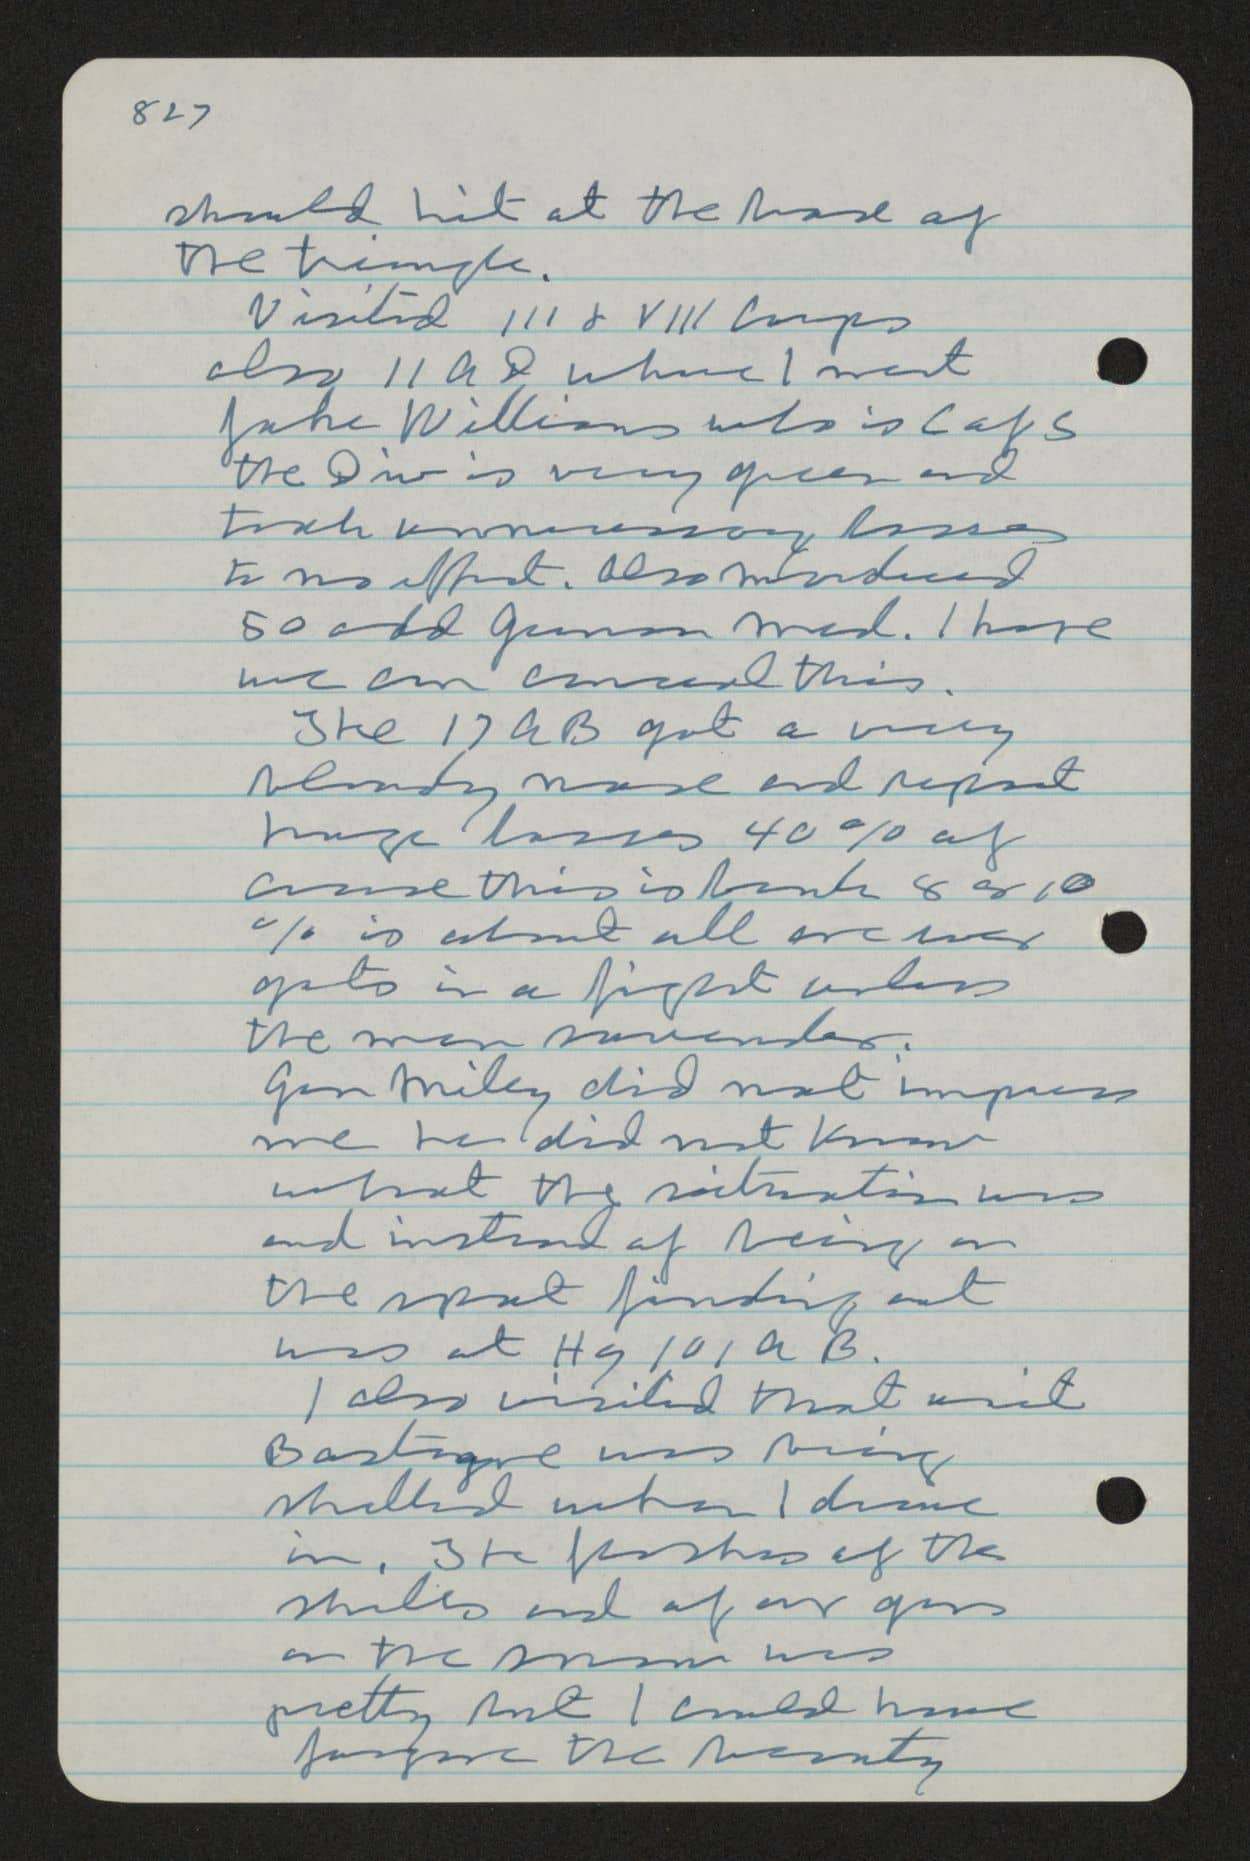 827
should hit at the base of
the triangle.
Visited III & VIII Corps
also 11 AD where I met
Jake Williams who is C of S
the Div is very green and
took unnecessary losses
to no effect. Also murdered
50 odd German med. I hope
we can conceal this.
The 17 AB got a very
bloody nose and report
huge losses 40 % of
course this is bunk 8 or 10
% is about all one ever
gets in a fight unless
the men surrender.
Gen Miley did not impress
me he did not know
what the situation was
and instead of being on
the spot finding out
was at Hq 101 AB.
I also visited that unit
Bastogne was being
shelled when I drove
in. The flashes of the
shells and of our guns
on the snow was
pretty but I could have
forgone the beauty